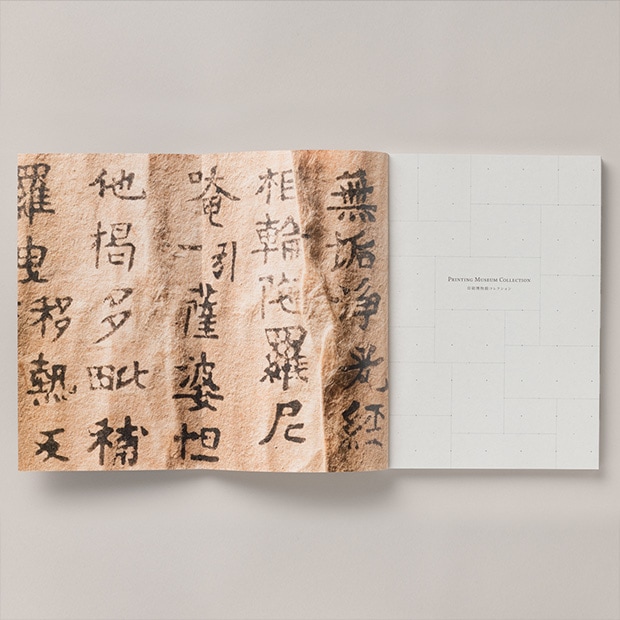 無垢淨光経
相輪陀羅尼
唵一引薩婆怛
他揭多毗補
羅曳移熱反
PRINTING MUSEUM COLLECTION
印刷博物館コレクション